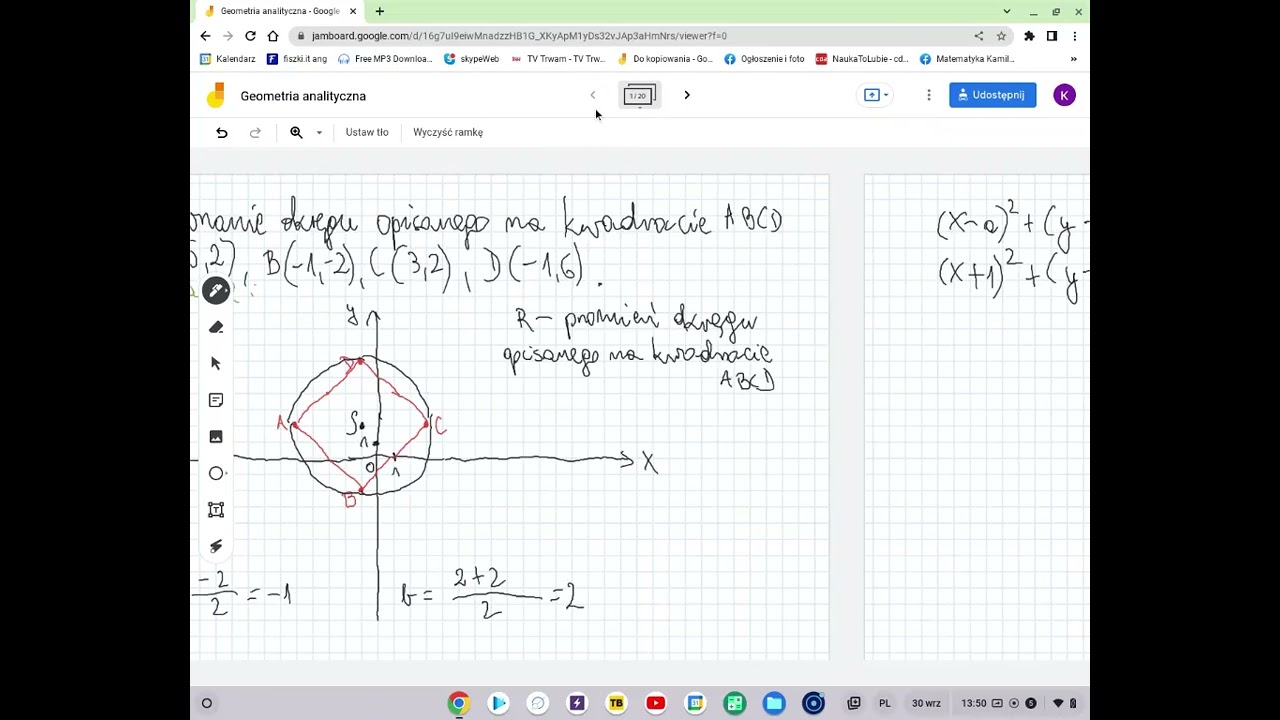 Geometria analityczna - Google
jamboard.google.com/d/16g7uI9eiwMnadzzHB1G_XKyApM1yDs32vJAp3aHmNrs/viewer?f=0
Kalendarz fiszki.it ang Free MP3 Downloa... skypeWeb TV Trwam - TV Trw... Do kopiowania - Go... Ogłoszenie i foto NaukaToLubie - cd... Matematyka Kamil... »
Geometria analityczna
1 / 20
Udostępnij
K
Ustaw tło Wyczyść ramkę
nanie okręgu opisanego na kwadracie ABCD
5,2), B(-1,-2), C(3,2), D(-1,6).
(x-a)²+(y-
(x+1)²+(y-
y
R - promień okręgu
opisanego na kwadracie
ABCD
D
A S C
1
0 1 X
B
-2/2 = -1
b = 2+2/2 = 2
PL 30 wrz 13:50 5